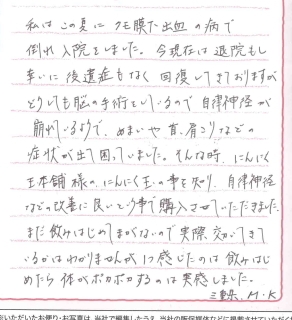 私はこの夏にクモ膜下出血の病で
倒れ入院をしました。今現在は退院もし
幸いに後遺症もなく回復してきておりますが
どうしても脳の手術としているので自律神経が
崩れているようで、めまいや首、肩こりなどの
症状が出て困っていました。そんな時、にんにく
玉本舗様の、にんにく玉の事を知り、自律神経
などの改善に良いという事で購入させていただきました。
まだ飲みはじめてまもないので実際、効いてきて
いるかはわかりませんが1つ感じたのは飲みはじ
めたら体がポカポカするのは実感しました。
三重県、M・K
いただいたお便り・お写真は、当社で編集したうえ、当社の販促媒体などに掲載させていただく